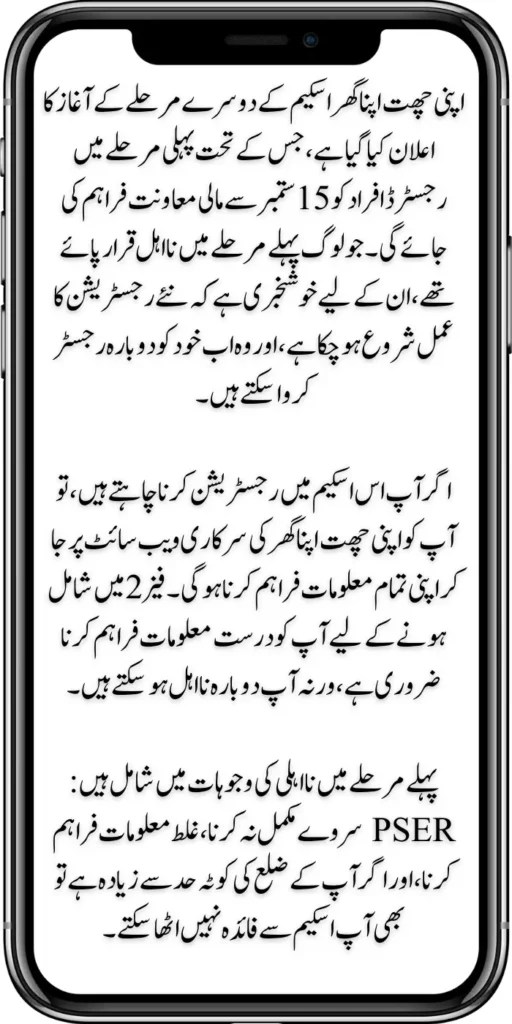 اپنی چھت اپنا گھر اسکیم کے دوسرے مرحلے کے آغاز کا
اعلان کیا گیا ہے، جس کے تحت پہلی مرحلے میں
رجسٹرڈ افراد کو 15 ستمبر سے مالی معاونت فراہم کی
جائے گی۔ جو لوگ پہلے مرحلے میں نااہل قرار پائے
تھے، ان کے لیے خوشخبری ہے کہ نئے رجسٹریشن کا
عمل شروع ہو چکا ہے، اور وہ اب خود کو دوبارہ رجسٹر
کروا سکتے ہیں۔
اگر آپ اس اسکیم میں رجسٹریشن کرنا چاہتے ہیں، تو
آپ کو اپنی چھت اپنا گھر کی سرکاری ویب سائٹ پر جا
کر اپنی تمام معلومات فراہم کرنا ہو گی۔ فیز 2 میں شامل
ہونے کے لیے آپ کو درست معلومات فراہم کرنا
ضروری ہے، ورنہ آپ دوبارہ نااہل ہو سکتے ہیں۔
پہلے مرحلے میں نااہلی کی وجوہات میں شامل ہیں:
PSER سروے مکمل نہ کرنا، غلط معلومات فراہم
کرنا، اور اگر آپ کے ضلع کی کوٹہ حد سے زیادہ ہے تو
بھی آپ اسکیم سے فائدہ نہیں اٹھا سکتے۔